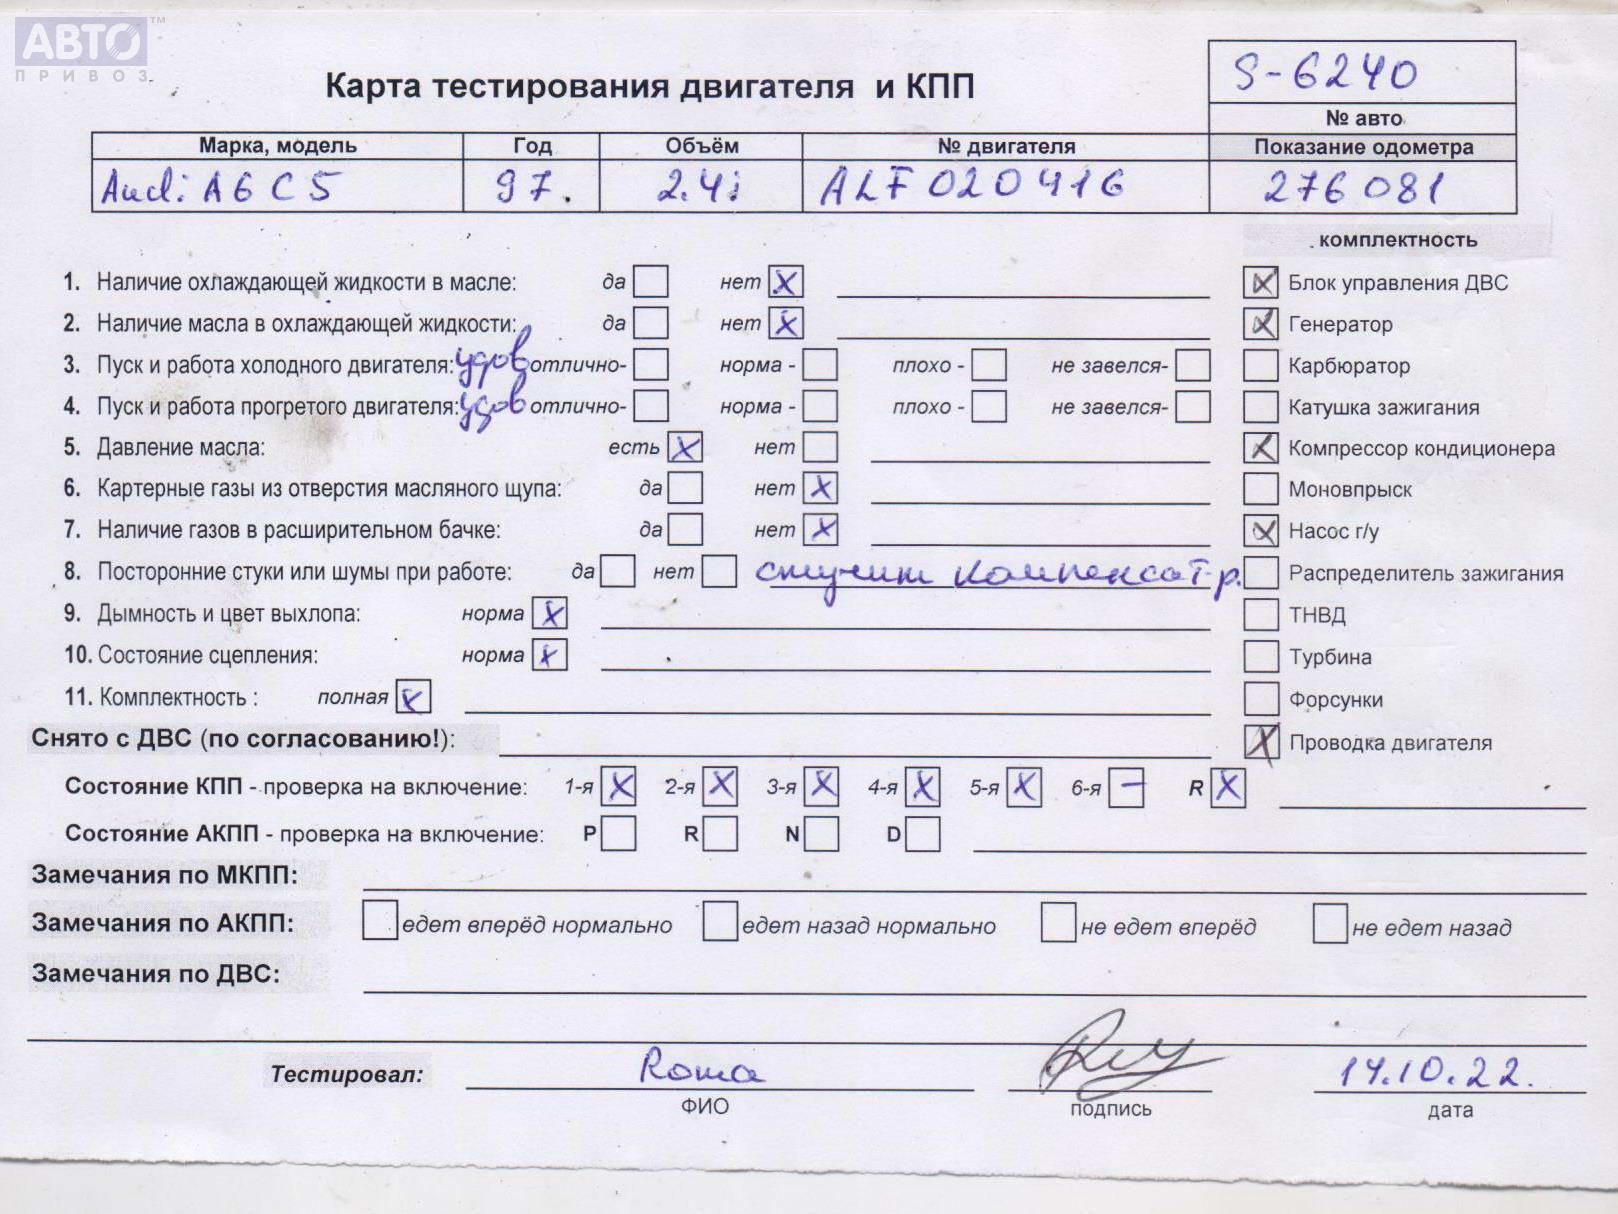 АВТО™
ПРИВОЗ
S-6240
Карта тестирования двигателя и КПП
№ авто
Марка, модель Год Объём № двигателя Показание одометра
Audi A6 C5 97. 2.4i ALF 020416 276081
комплектность
1. Наличие охлаждающей жидкости в масле: да нет X Блок управления ДВС
2. Наличие масла в охлаждающей жидкости: да нет X Генератор
3. Пуск и работа холодного двигателя: удов отлично- норма - плохо - не завелся- Карбюратор
4. Пуск и работа прогретого двигателя: удов отлично- норма - плохо - не завелся- Катушка зажигания
5. Давление масла: есть X нет Компрессор кондиционера
6. Картерные газы из отверстия масляного щупа: да нет X Моновпрыск
7. Наличие газов в расширительном бачке: да нет X Насос г/у
8. Посторонние стуки или шумы при работе: да нет стучит компенсат-р. Распределитель зажигания
9. Дымность и цвет выхлопа: норма X ТНВД
10. Состояние сцепления: норма X Турбина
11. Комплектность : полная X Форсунки
Снято с ДВС (по согласованию!): Проводка двигателя
Состояние КПП - проверка на включение: 1-я X 2-я X 3-я X 4-я X 5-я X 6-я – R X
Состояние АКПП - проверка на включение: P R N D
Замечания по МКПП:
Замечания по АКПП: едет вперёд нормально едет назад нормально не едет вперёд не едет назад
Замечания по ДВС:
Тестировал: Roma 14.10.22.
ФИО подпись дата